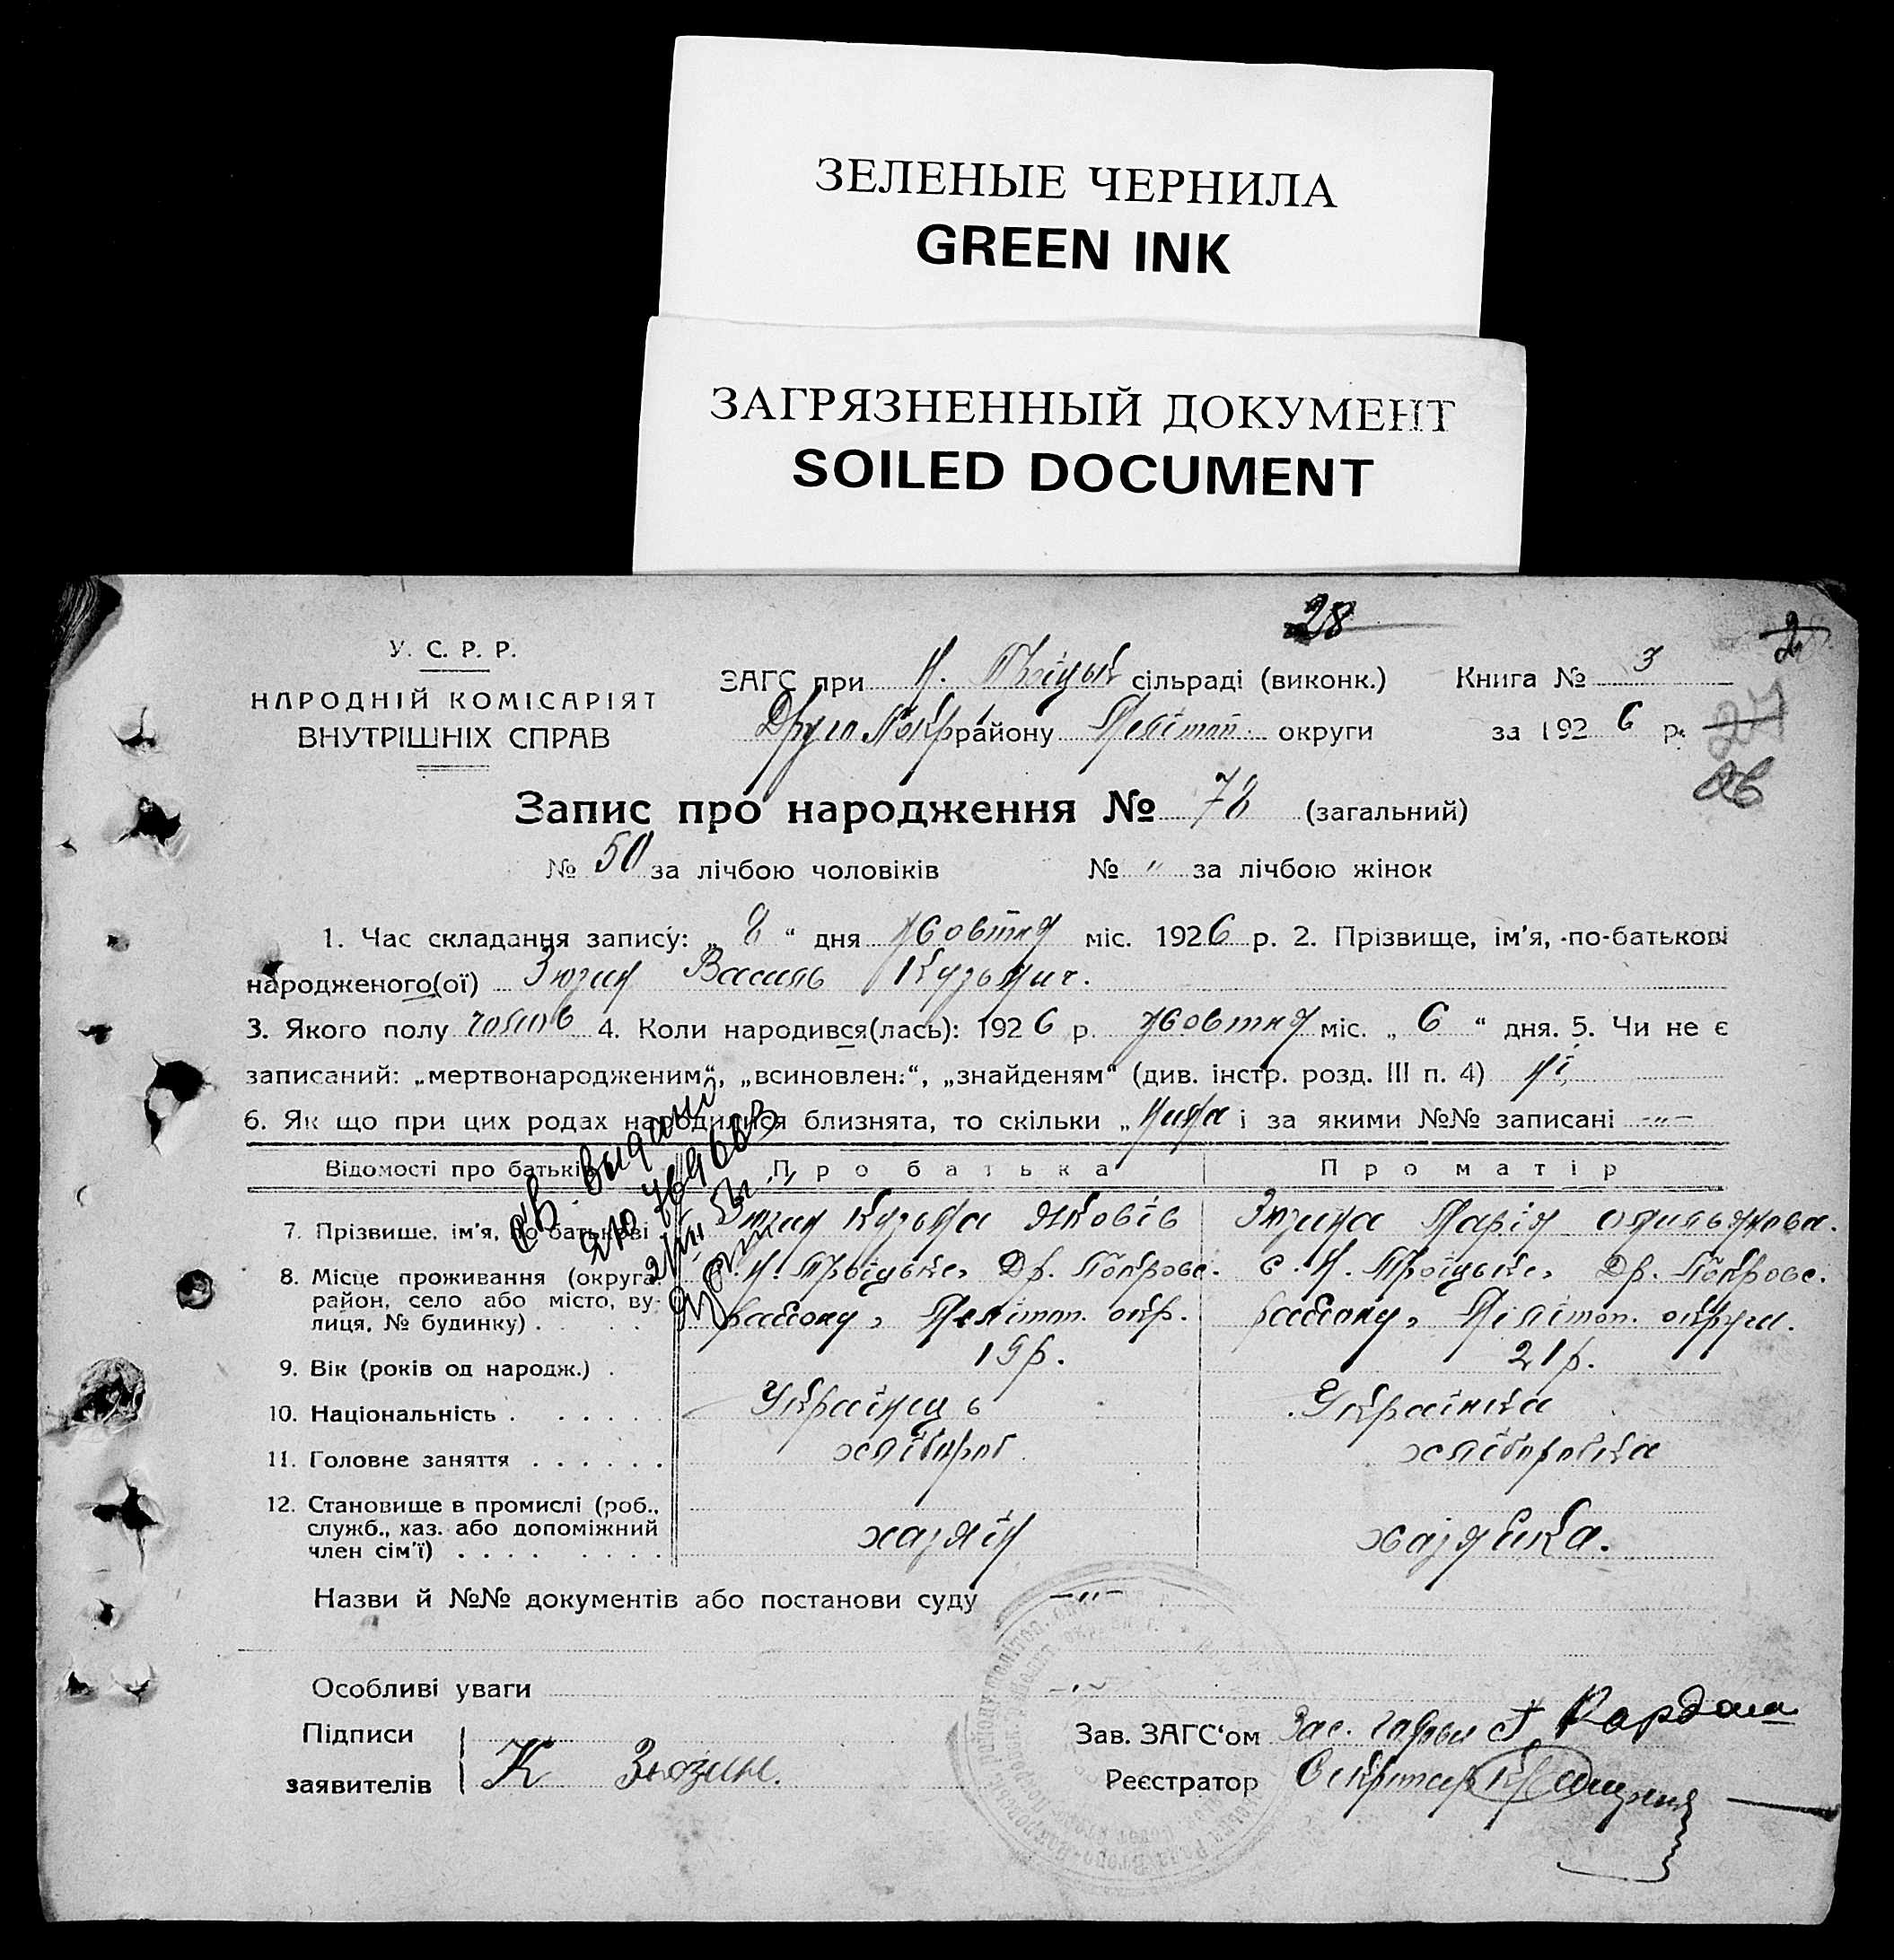 ЗЕЛЕНЫЕ ЧЕРНИЛА
GREEN INK
ЗАГРЯЗНЕННЫЙ ДОКУМЕНТ
SOILED DOCUMENT
28
2
У. С. Р. Р.
НАРОДНІЙ КОМІСАРІЯТ
ВНУТРІШНІХ СПРАВ
ЗАГС при Н. Троіцьк сільраді (виконк.) Книга № 3
Друго Покр району Меліт. округи за 1926 р.
27
26
Запис про народження № 78 (загальний)
№ 50 за лічбою чоловіків № " за лічбою жінок
1. Час складання запису: „ 8 " дня жовтня міс. 1926 р. 2. Прізвище, ім'я, по-батькові
народженого(ої) Зюзин Василь Кузьмич.
3. Якого полу чолов 4. Коли народився(лась): 1926 р. жовтня міс. „ 6 " дня. 5. Чи не є
записаний: „мертвонародженим", „всиновлен.", „знайденям" (див. інстр. розд. III п. 4) ні
6. Як що при цих родах народилися близнята, то скільки „ нема і за якими №№ записані —"—
св. выдано
Відомості про батьків Про батька Про матір
7. Прізвише, ім'я, по батькові Зюзин Кузьма Яковів Зюзина Марія Омельянова.
8. Місце проживання (округа, район, село або місто, вулиця, № будинку) .
с. Н. Троіцьке, Др. Покровс. с. Н. Троіцьке, Др. Покровс.
району, Мелітоп. окр. району, Мелітоп. округи.
9. Вік (років од народж.) . 19 р. 21 р.
10. Національність . . . . . . Українець Українка
11. Головне заняття . . . . . . хлібороб хліборобка
12. Становище в промислі (роб.,
служб., хаз. або допоміжний
член сім'ї) . . . . . . . . хазяїн хазяйка.
Назви й №№ документів або постанови суду —"—
Особливі уваги —"—
Підписи
заявителів К Зюзин.
Зав. ЗАГС'ом Зас. голови
Реєстратор Секретар